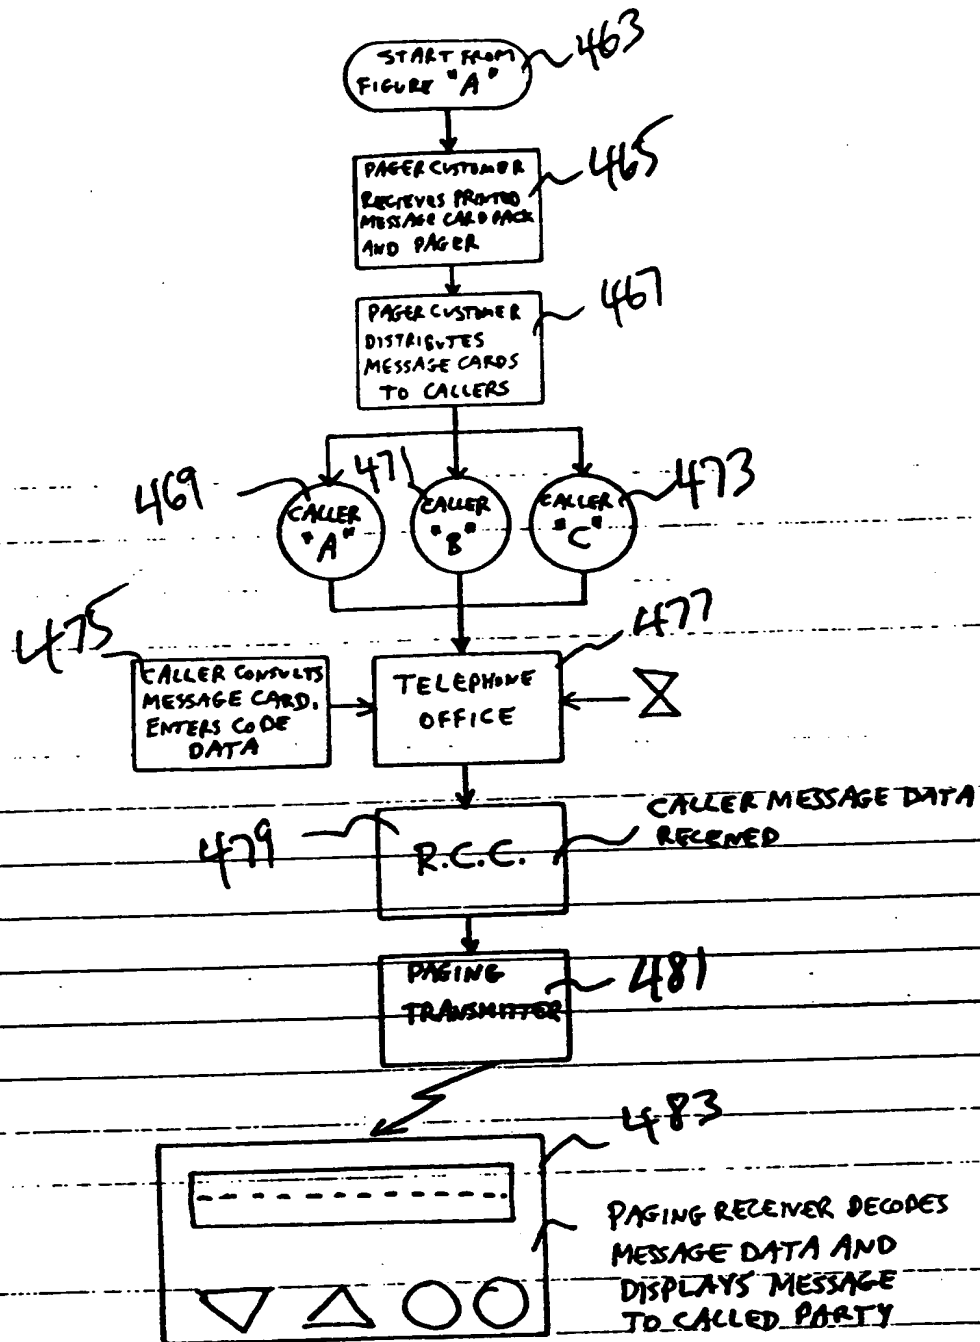 START FROM
FIGURE "A"
463
PAGER CUSTOMER
RECIEVES PRINTED
MESSAGE CARD PACK
AND PAGER
465
PAGER CUSTOMER
DISTRIBUTES
MESSAGE CARDS
TO CALLERS
467
469
CALLER
"A"
471
CALLER
"B"
473
CALLER
"C"
475
CALLER CONSULTS
MESSAGE CARD,
ENTERS CODE
DATA
477
TELEPHONE
OFFICE
479
R.C.C.
CALLER MESSAGE DATA
RECEIVED
PAGING
TRANSMITTER
481
483
PAGING RECEIVER DECODES
MESSAGE DATA AND
DISPLAYS MESSAGE
TO CALLED PARTY